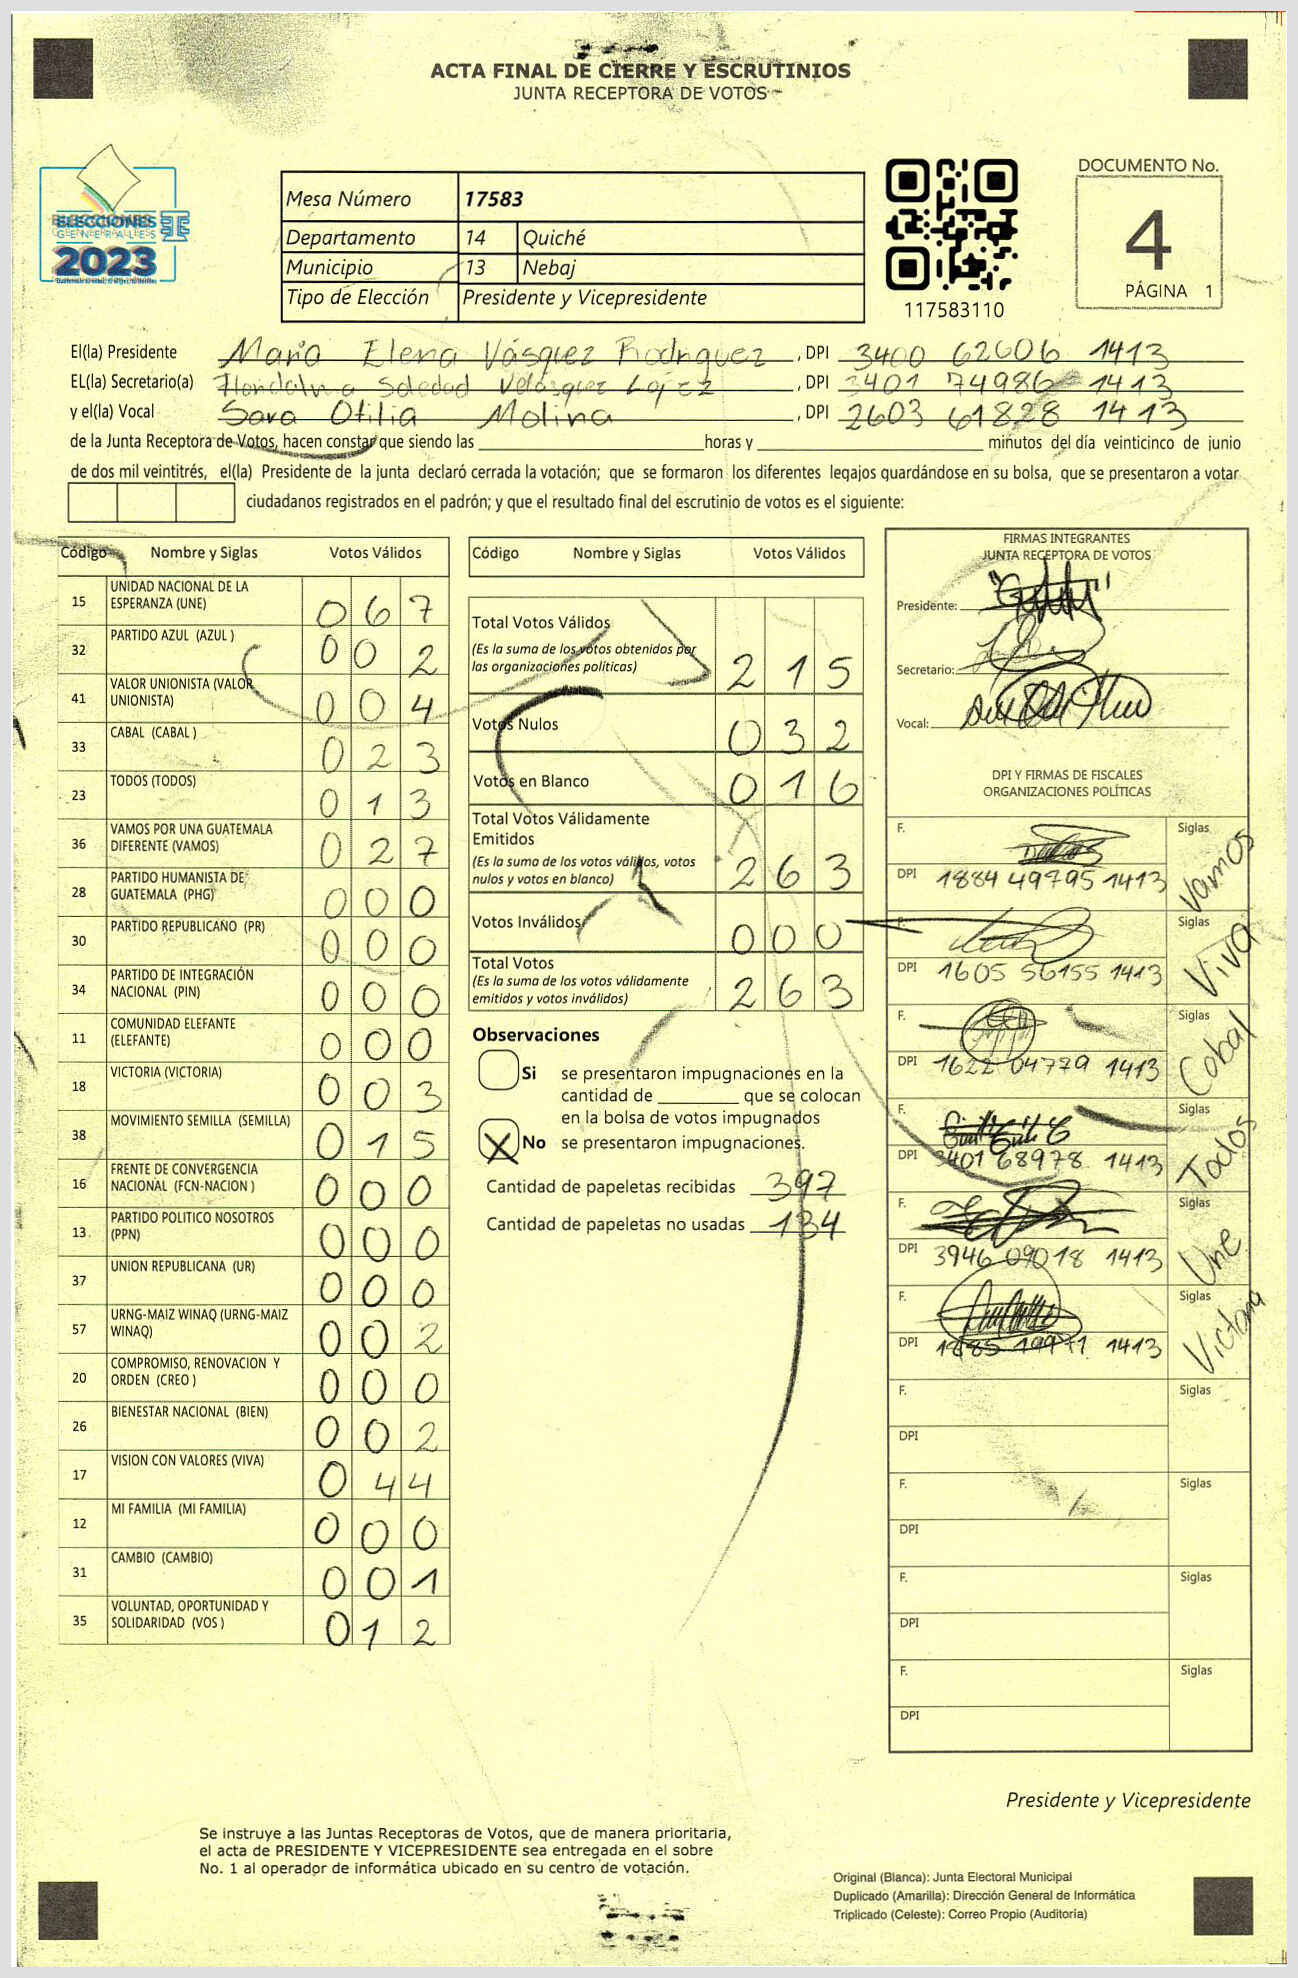 ACTA FINAL DE CIERRE Y ESCRUTINIOS
JUNTA RECEPTORA DE VOTOS
ELECCIONES
GENERALES
2023
Mesa Número 17583
Departamento 14 Quiché
Municipio 13 Nebaj
Tipo de Elección Presidente y Vicepresidente
117583110
DOCUMENTO No.
4
PÁGINA 1
El(la) Presidente Maria Elena Vásquez Rodriguez , DPI 3400 62606 1413
EL(la) Secretario(a) Soledad Velásquez López , DPI 3401 74986 1413
y el(la) Vocal Sara Otilia Molina , DPI 2603 61828 1413
de la Junta Receptora de Votos, hacen constar que siendo las horas y minutos del día veinticinco de junio
de dos mil veintitrés, el(la) Presidente de la junta declaró cerrada la votación; que se formaron los diferentes legajos guardándose en su bolsa, que se presentaron a votar
ciudadanos registrados en el padrón; y que el resultado final del escrutinio de votos es el siguiente:
Código Nombre y Siglas Votos Válidos
15 UNIDAD NACIONAL DE LA ESPERANZA (UNE) 067
32 PARTIDO AZUL (AZUL ) 002
41 VALOR UNIONISTA (VALOR UNIONISTA) 004
33 CABAL (CABAL ) 023
23 TODOS (TODOS) 013
36 VAMOS POR UNA GUATEMALA DIFERENTE (VAMOS) 027
28 PARTIDO HUMANISTA DE GUATEMALA (PHG) 000
30 PARTIDO REPUBLICANO (PR) 000
34 PARTIDO DE INTEGRACIÓN NACIONAL (PIN) 000
11 COMUNIDAD ELEFANTE (ELEFANTE) 000
18 VICTORIA (VICTORIA) 003
38 MOVIMIENTO SEMILLA (SEMILLA) 015
16 FRENTE DE CONVERGENCIA NACIONAL (FCN-NACION ) 000
13 PARTIDO POLITICO NOSOTROS (PPN) 000
37 UNION REPUBLICANA (UR) 000
57 URNG-MAIZ WINAQ (URNG-MAIZ WINAQ) 002
20 COMPROMISO, RENOVACION Y ORDEN (CREO ) 000
26 BIENESTAR NACIONAL (BIEN) 002
17 VISION CON VALORES (VIVA) 044
12 MI FAMILIA (MI FAMILIA) 000
31 CAMBIO (CAMBIO) 001
35 VOLUNTAD, OPORTUNIDAD Y SOLIDARIDAD (VOS ) 012
Código Nombre y Siglas Votos Válidos
Total Votos Válidos
(Es la suma de los votos obtenidos por
las organizaciones políticas) 215
Votos Nulos 032
Votos en Blanco 016
Total Votos Válidamente
Emitidos
(Es la suma de los votos válidos, votos
nulos y votos en blanco) 263
Votos Inválidos 000
Total Votos
(Es la suma de los votos válidamente
emitidos y votos inválidos) 263
Observaciones
Si se presentaron impugnaciones en la
cantidad de que se colocan
en la bolsa de votos impugnados
X No se presentaron impugnaciones.
Cantidad de papeletas recibidas 397
Cantidad de papeletas no usadas 134
FIRMAS INTEGRANTES
JUNTA RECEPTORA DE VOTOS
Presidente:
Secretario:
Vocal:
DPI Y FIRMAS DE FISCALES
ORGANIZACIONES POLÍTICAS
F. Siglas Vamos
DPI 1884 49795 1413
F. Siglas Viva
DPI 1605 56155 1413
F. Siglas Cabal
DPI 1622 04779 1413
F. Siglas Todos
DPI 3401 68978 1413
F. Siglas Une
DPI 3946 09018 1413
F. Siglas Victoria
DPI 1413
F. Siglas
DPI
F. Siglas
DPI
F. Siglas
DPI
F. Siglas
DPI
Presidente y Vicepresidente
Se instruye a las Juntas Receptoras de Votos, que de manera prioritaria,
el acta de PRESIDENTE Y VICEPRESIDENTE sea entregada en el sobre
No. 1 al operador de informática ubicado en su centro de votación.
Original (Blanca): Junta Electoral Municipal
Duplicado (Amarilla): Dirección General de Informática
Triplicado (Celeste): Correo Propio (Auditoría)